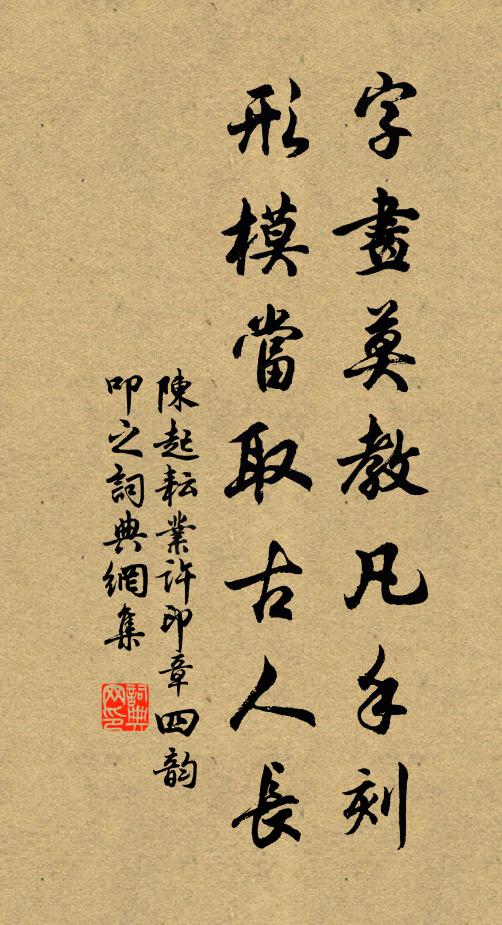 字畫莫教凡手刻
形模當取古人長
陳起耘業許印章四韵
叩之詞典網集
詞典网印